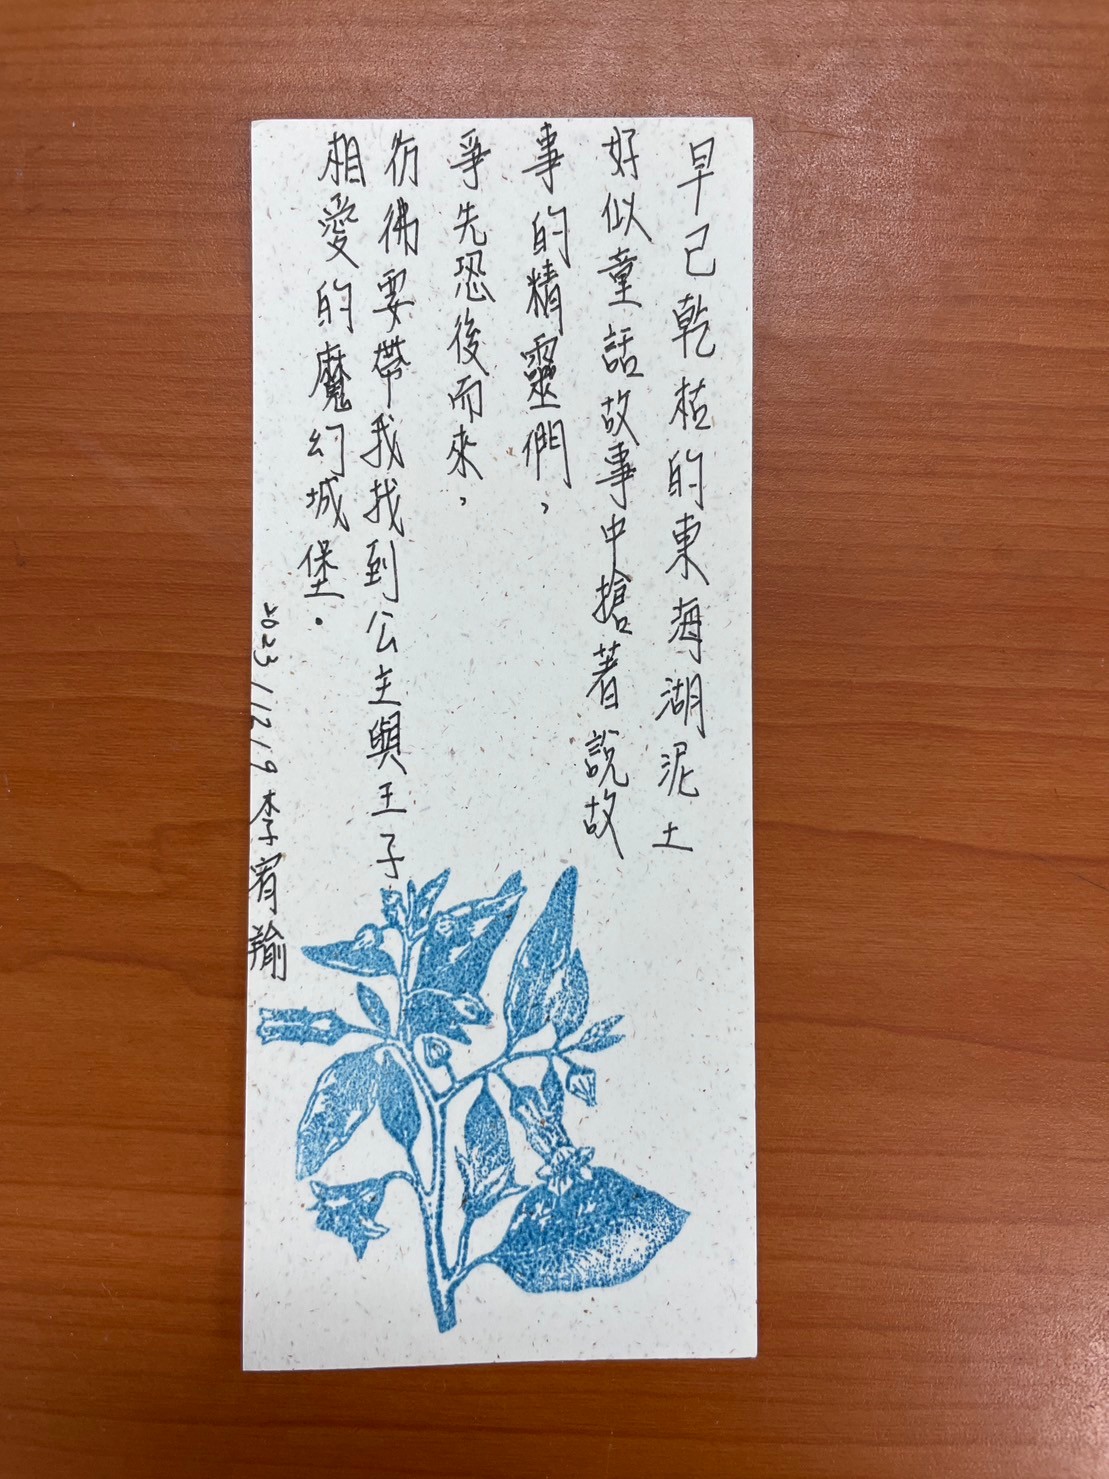 早已乾枯的東海湖泥土
好似童話故事中搶著說故
事的精靈們，
爭先恐後而來，
彷彿要帶我找到公主與王子
相愛的魔幻城堡。
2023/12/9 李宥褕